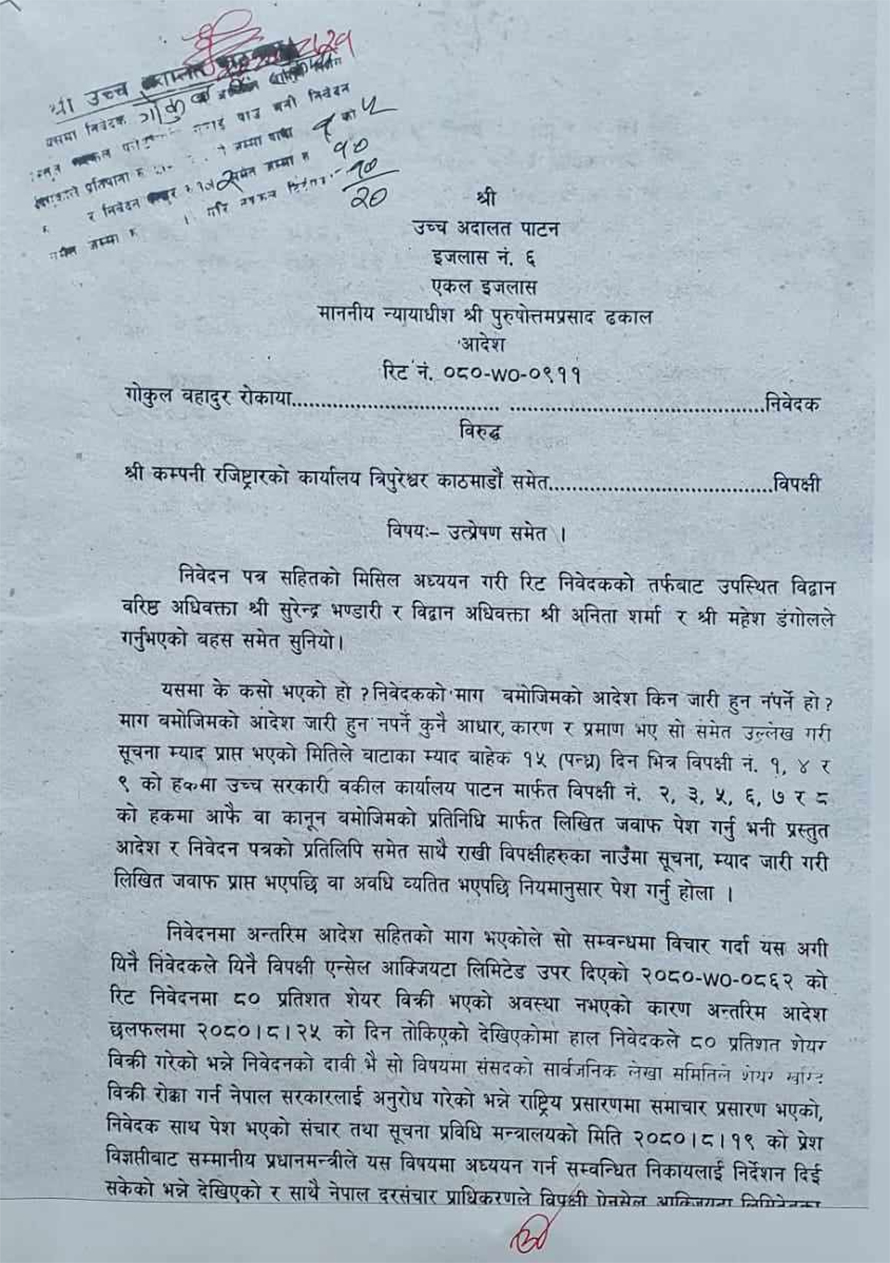 श्री उच्च
यसमा निवेदक गोकुल
पाउ भनी निवेदन
र निवेदन समेत जम्मा रु १०
जम्मा रु २०
श्री
उच्च अदालत पाटन
इजलास नं. ६
एकल इजलास
माननीय न्यायाधीश श्री पुरुषोत्तमप्रसाद ढकाल
आदेश
रिट नं. ०८०-WO-०९११
गोकुल वहादुर रोकाया.................................. ..........................................निवेदक
विरुद्ध
श्री कम्पनी रजिष्ट्रारको कार्यालय त्रिपुरेश्वर काठमाडौं समेत.....................................विपक्षी
विषयः- उत्प्रेषण समेत ।
निवेदन पत्र सहितको मिसिल अध्ययन गरी रिट निवेदकको तर्फबाट उपस्थित विद्वान
वरिष्ठ अधिवक्ता श्री सुरेन्द्र भण्डारी र विद्वान अधिवक्ता श्री अनिता शर्मा र श्री महेश डंगोलले
गर्नुभएको वहस समेत सुनियो।
यसमा के कसो भएको हो ? निवेदकको माग वमोजिमको आदेश किन जारी हुन नपर्ने हो ?
माग वमोजिमको आदेश जारी हुन नपर्ने कुनै आधार, कारण र प्रमाण भए सो समेत उल्लेख गरी
सूचना म्याद प्राप्त भएको मितिले वाटाका म्याद बाहेक १५ (पन्ध्र) दिन भित्र विपक्षी नं. १, ४ र
९ को हकमा उच्च सरकारी वकील कार्यालय पाटन मार्फत विपक्षी नं. २, ३, ५, ६, ७ र ८
को हकमा आफै वा कानून वमोजिमको प्रतिनिधि मार्फत लिखित जवाफ पेश गर्नु भनी प्रस्तुत
आदेश र निवेदन पत्रको प्रतिलिपि समेत साथै राखी विपक्षीहरुका नाउँमा सूचना, म्याद जारी गरी
लिखित जवाफ प्राप्त भएपछि वा अवधि व्यतित भएपछि नियमानुसार पेश गर्नु होला ।
निवेदनमा अन्तरिम आदेश सहितको माग भएकोले सो सम्वन्धमा विचार गर्दा यस अगी
यिनै निवेदकले यिनै विपक्षी एन्सेल आक्जियटा लिमिटेड उपर दिएको २०८०-WO-०८६२ को
रिट निवेदनमा ८० प्रतिशत शेयर विक्री भएको अवस्था नभएको कारण अन्तरिम आदेश
छलफलमा २०८०।८।२५ को दिन तोकिएको देखिएकोमा हाल निवेदकले ८० प्रतिशत शेयर
विक्री गरेको भन्ने निवेदनको दावी भै सो विषयमा संसदको सार्वजनिक लेखा समितिले शेयर खरिद
विक्री रोक्का गर्न नेपाल सरकारलाई अनुरोध गरेको भन्ने राष्ट्रिय प्रसारणमा समाचार प्रसारण भएको,
निवेदक साथ पेश भएको संचार तथा सूचना प्रविधि मन्त्रालयको मिति २०८०।८।१९ को प्रेश
विज्ञप्तीबाट सम्मानीय प्रधानमन्त्रीले यस विषयमा अध्ययन गर्न सम्वन्धित निकायलाई निर्देशन दिई
सकेको भन्ने देखिएको र साथै नेपाल दूरसंचार प्राधिकरणले विपक्षी ऐनसेल आक्जियटा लिमिटेडका